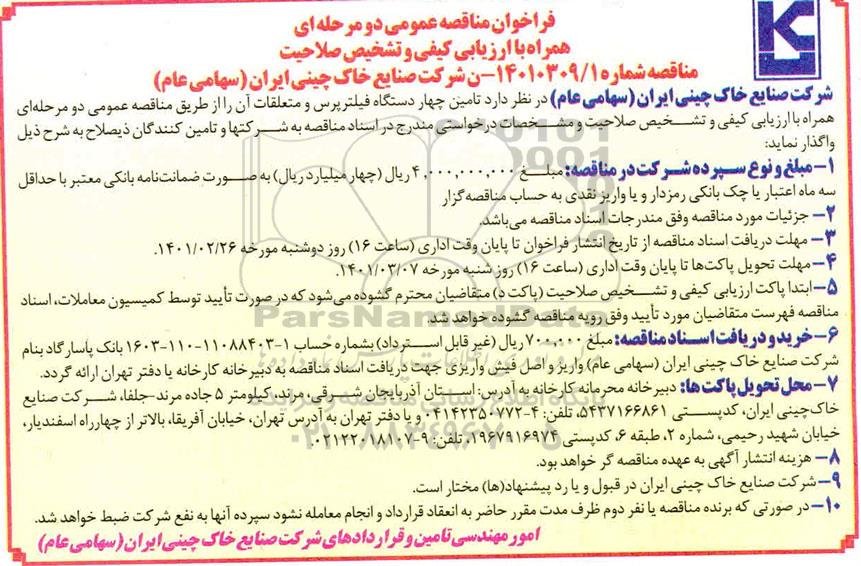 فراخوان مناقصه عمومی دو مرحله ای
همراه با ارزیابی کیفی و تشخیص صلاحیت
مناقصه شماره ۱۴۰۱۰۳۰۹/۱-ن شرکت صنایع خاک چینی ایران (سهامی عام)
شرکت صنایع خاک چینی ایران (سهامی عام) در نظر دارد تامین چهار دستگاه فیلترپرس و متعلقات آن را از طریق مناقصه عمومی دو مرحله‌ای
همراه با ارزیابی کیفی و تشخیص صلاحیت و مشخصات درخواستی مندرج در اسناد مناقصه به شرکتها و تامین کنندگان ذیصلاح به شرح ذیل
واگذار نماید:
۱- مبلغ و نوع سپرده شرکت در مناقصه: مبلغ ۴,۰۰۰,۰۰۰,۰۰۰ ریال (چهار میلیارد ریال) به صورت ضمانت‌نامه بانکی معتبر با حداقل
سه ماه اعتبار یا چک بانکی رمزدار و یا واریز نقدی به حساب مناقصه‌گزار
۲- جزئیات مورد مناقصه وفق مندرجات اسناد مناقصه می‌باشد.
۳- مهلت دریافت اسناد مناقصه از تاریخ انتشار فراخوان تا پایان وقت اداری (ساعت ۱۶) روز دوشنبه مورخه ۱۴۰۱/۰۲/۲۶.
۴- مهلت تحویل پاکت‌ها تا پایان وقت اداری (ساعت ۱۶) روز شنبه مورخه ۱۴۰۱/۰۳/۰۷.
۵- ابتدا پاکت ارزیابی کیفی و تشخیص صلاحیت (پاکت د) متقاضیان محترم گشوده می‌شود که در صورت تأیید توسط کمیسیون معاملات، اسناد
مناقصه فهرست متقاضیان مورد تأیید وفق رویه مناقصه گشوده خواهد شد.
۶- خرید و دریافت اسناد مناقصه: مبلغ ۷۰۰,۰۰۰ ریال (غیر قابل استرداد) بشماره حساب ۱-۱۱۰۸۸۴۰۳-۱۱۰-۱۶۰۳ بانک پاسارگاد بنام
شرکت صنایع خاک چینی ایران (سهامی عام) واریز و اصل فیش واریزی جهت دریافت اسناد مناقصه به دبیرخانه کارخانه یا دفتر تهران ارائه گردد.
۷- محل تحویل پاکت‌ها: دبیرخانه محرمانه کارخانه به آدرس: استان آذربایجان شرقی، مرند، کیلومتر ۵ جاده مرند-جلفا، شرکت صنایع
خاک‌چینی ایران، کدپستی ۵۴۳۷۱۶۶۸۶۱، تلفن: ۴-۰۴۱۴۲۳۵۰۷۷۲ و یا دفتر تهران به آدرس تهران، خیابان آفریقا، بالاتر از چهارراه اسفندیار،
خیابان شهید رحیمی، شماره ۲، طبقه ۶، کدپستی ۱۹۶۷۹۱۶۹۷۴، تلفن: ۹-۰۲۱۲۲۰۱۸۱۰۷.
۸- هزینه انتشار آگهی به عهده مناقصه گر خواهد بود.
۹- شرکت صنایع خاک چینی ایران در قبول و یا رد پیشنهاد(ها) مختار است.
۱۰- در صورتی که برنده مناقصه یا نفر دوم ظرف مدت مقرر حاضر به انعقاد قرارداد و انجام معامله نشود سپرده آنها به نفع شرکت ضبط خواهد شد.
امور مهندسی تامین و قراردادهای شرکت صنایع خاک چینی ایران (سهامی عام)
ParsNamadData
پایگاه اطلاع رسانی مناقصه و مزایده
۰۲۱-۸۸۳۴۹۶۷۰-۵